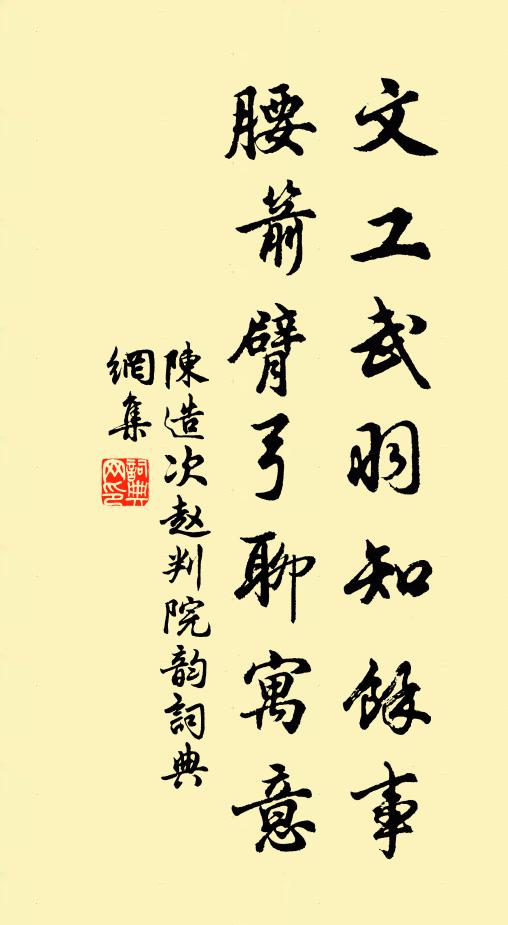 文工武羽知餘事
腰箭臂弓聊寓意
陳造次赵判院韵詞典
網集
詞典
网印